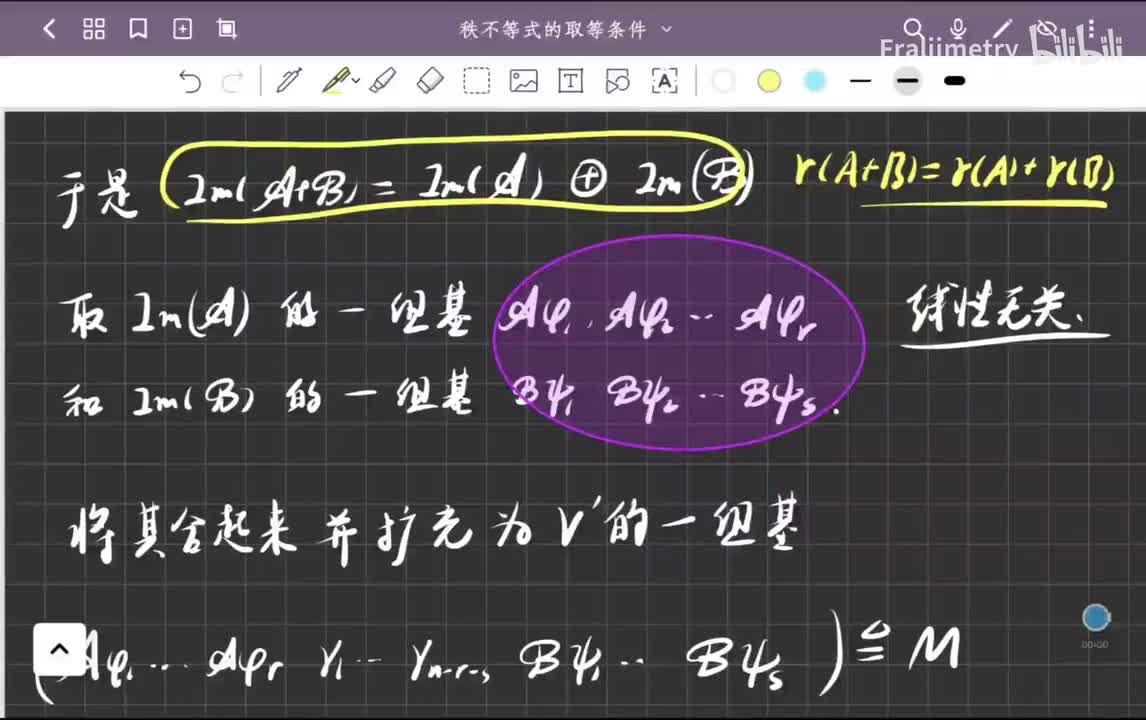 秩不等式的取等条件
Fraljimetry bilibili
于是 Im(A+B) = Im(A) ⊕ Im(B) r(A+B)=r(A)+r(B)
取 Im(A) 的一组基 Aφ₁, Aφ₂ ‥ Aφᵣ 线性无关.
和 Im(B) 的一组基 Bψ₁ Bψ₂ ‥ Bψₛ.
将其合起来并扩充为 V' 的一组基
(Aφ₁ … Aφᵣ γ₁ … γₙ₋ᵣ₋ₛ Bψ₁ ‥ Bψₛ) ≙ M
00:00